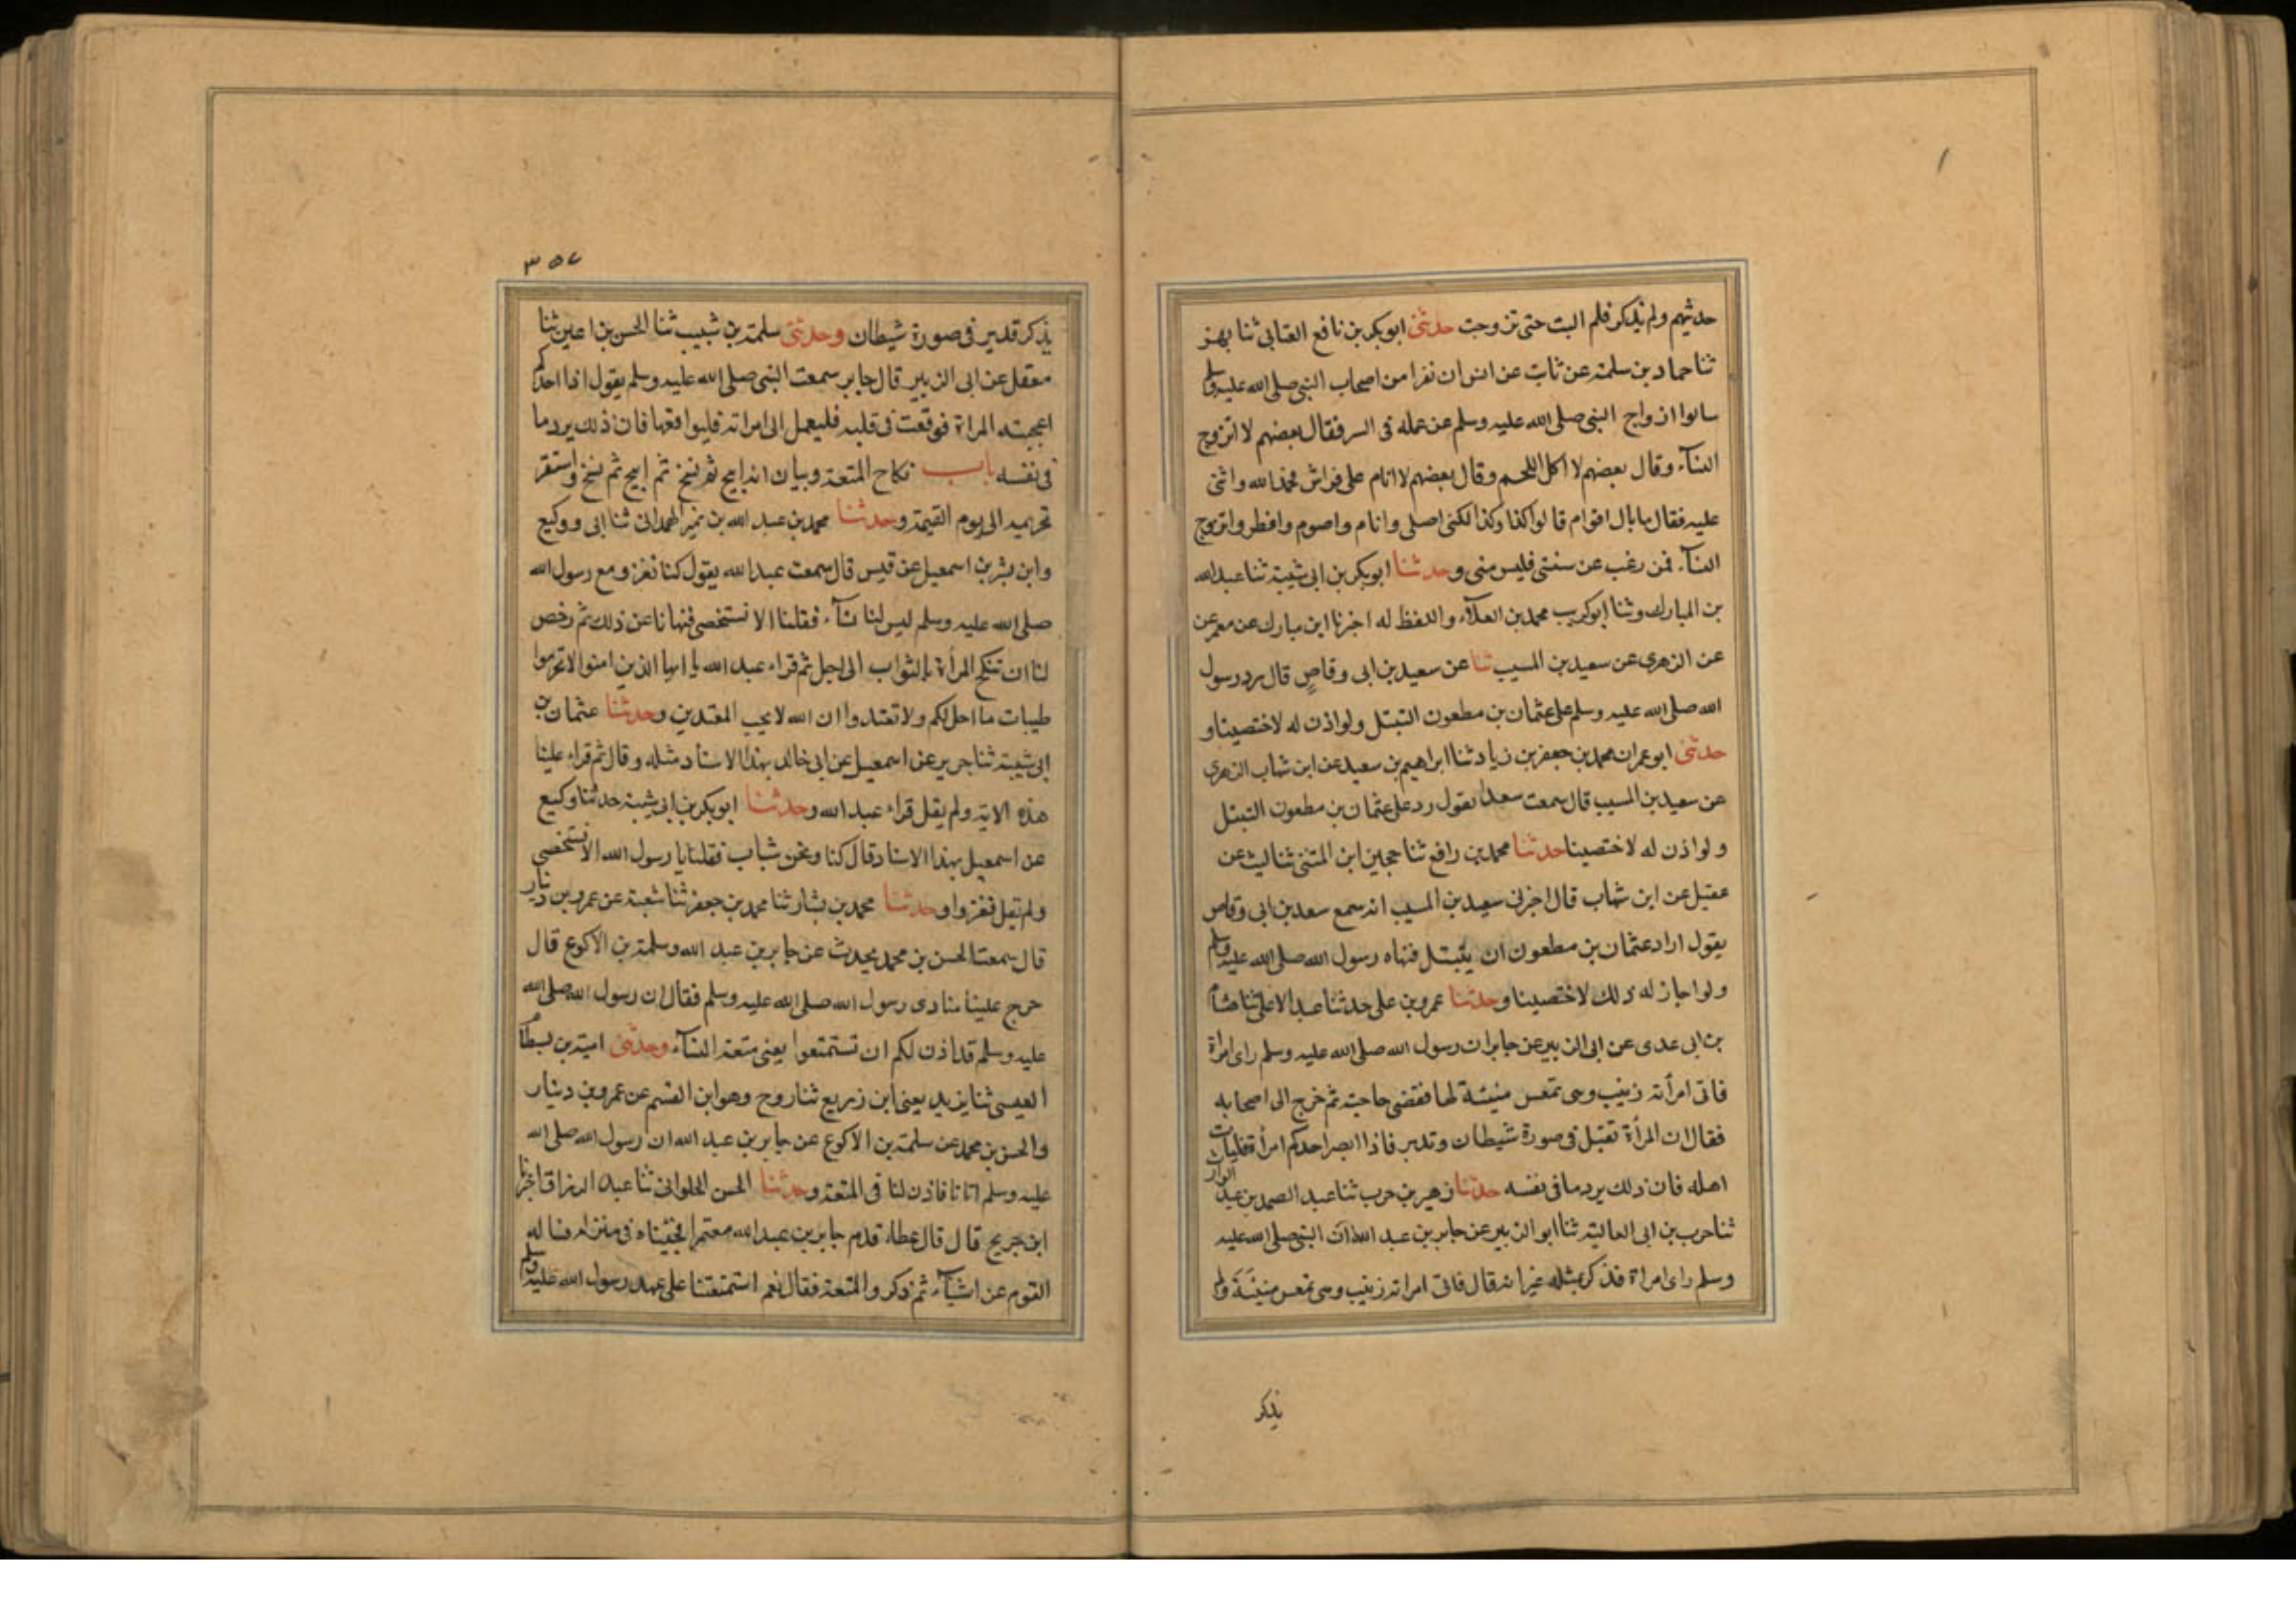 حدثهم ولم يذكر فلم البث حتى تزوجت حدثنى ابوبكر بن نافع العتابى ثنا بهز
ثنا حماد بن سلمة عن ثابت عن انس ان نفرا من اصحاب النبى صلى الله عليه وسلم
سالوا ازواج النبى صلى الله عليه وسلم عن عمله فى السر فقال بعضهم لا اتزوج
النسآء وقال بعضهم لا اكل اللحم وقال بعضهم لا انام على فراش فحمد الله واثنى
عليه فقال ما بال اقوام قالوا كذا وكذا لكنى اصلى وانام واصوم وافطر واتزوج
النسآء فمن رغب عن سنتى فليس منى وحدثنا ابوبكر بن ابى شيبة ثنا عبد الله
بن المبارك وثنا ابوكريب محمد بن العلآء واللفظ له اخبرنا ابن مبارك عن معمر عن
عن الزهرى عن سعيد بن المسيب ثنا عن سعيد بن ابى وقاص قال رد رسول
الله صلى الله عليه وسلم على عثمان بن مطعون التبتل ولو اذن له لاختصينا و
حدثنى ابو عمران محمد بن جعفر بن زياد ثنا ابراهيم بن سعيد عن ابن شهاب الزهرى
عن سعيد بن المسيب قال سمعت سعدا يقول رد على عثمان بن مطعون التبتل
ولو اذن له لاختصينا حدثنا محمد بن رافع ثنا حجين ابن المثنى ثنا ليث عن
عقيل عن ابن شهاب قال اخبرنى سعيد بن المسيب انه سمع سعد بن ابى وقاص
يقول اراد عثمان بن مطعون ان يتبتل فنهاه رسول الله صلى الله عليه وسلم
ولو اجاز له ذلك لاختصينا وحدثنا عمرو بن على حدثنا عبد الاعلى ثنا هشام
بن ابى عدى عن ابى الزبير عن جابر ان رسول الله صلى الله عليه وسلم راى امرأة
فاتى امرأته زينب وهى تمعس منيئة لها فقضى حاجته ثم خرج الى اصحابه
فقال ان المرأة تقبل فى صورة شيطان وتدبر فاذا ابصر احدكم امرأة فليات
اهله فان ذلك يرد ما فى نفسه حدثنا زهير بن حرب ثنا عبد الصمد بن عبد الوارث
ثنا حرب بن ابى العالية ثنا ابو الزبير عن جابر بن عبد الله ان النبى صلى الله عليه
وسلم راى امراة فذكر بمثله غير انه قال فاتى امراته زينب وهى تمعس منيئة ولم
يذكر
٣٥٧
يذكر تدبر فى صورة شيطان وحدثنى سلمة بن شبيب ثنا الحسن بن اعين ثنا
معقل عن ابى الزبير قال جابر سمعت النبى صلى الله عليه وسلم يقول اذا احدكم
اعجبته المراة فوقعت فى قلبه فليعمل الى امراته فليواقعها فان ذلك يرد ما
فى نفسه باب نكاح المتعة وبيان انه ابيح ثم نسخ ثم ابيح ثم نسخ واستقر
تحريمه الى يوم القيمة وحدثنا محمد بن عبد الله بن نمير الهمدانى ثنا ابى ووكيع
وابن بشر بن اسمعيل عن قيس قال سمعت عبد الله يقول كنا نغزو مع رسول الله
صلى الله عليه وسلم ليس لنا نسآء فقلنا الا نستخصى فنهانا عن ذلك ثم رخص
لنا ان ننكح المرأة بالثواب الى اجل ثم قراء عبد الله يا ايها الذين امنوا لا تحرموا
طيبات ما احل لكم ولا تعتدوا ان الله لا يحب المعتدين وحدثنا عثمان بن
ابى شيبة ثنا جرير عن اسمعيل عن ابى خالد بهذا الاسناد مثله وقال ثم قراء علينا
هذه الاية ولم يقل قراء عبد الله وحدثنا ابوبكر بن ابى شيبة حدثنا وكيع
عن اسمعيل بهذا الاسناد قال كنا ونحن شباب فقلنا يا رسول الله الا نستخصى
ولم تقل نغزوا وحدثنا محمد بن بشار ثنا محمد بن جعفر ثنا شعبة عن عمرو بن دينار
قال سمعت الحسن بن محمد يحدث عن جابر بن عبد الله وسلمة بن الاكوع قال
خرج علينا منادى رسول الله صلى الله عليه وسلم فقال ان رسول الله صلى الله
عليه وسلم قد اذن لكم ان تستمتعوا يعنى متعة النسآء وحدثنى امية بن بسطام
العيسى ثنا يزيد يعنى ابن زريع ثنا روح وهو ابن القسم عن عمرو بن دينار
والحسن بن محمد عن سلمة بن الاكوع عن جابر بن عبد الله ان رسول الله صلى الله
عليه وسلم اتانا فاذن لنا فى المتعة وحدثنا الحسن الحلوانى ثنا عبد الرزاق اخبرنا
ابن جريج قال قال عطاء قدم جابر بن عبد الله معتمرا فجئناه فى منزله فساله
القوم عن اشيآء ثم ذكروا المتعة فقال نعم استمتعنا على عهد رسول الله عليه وسلم